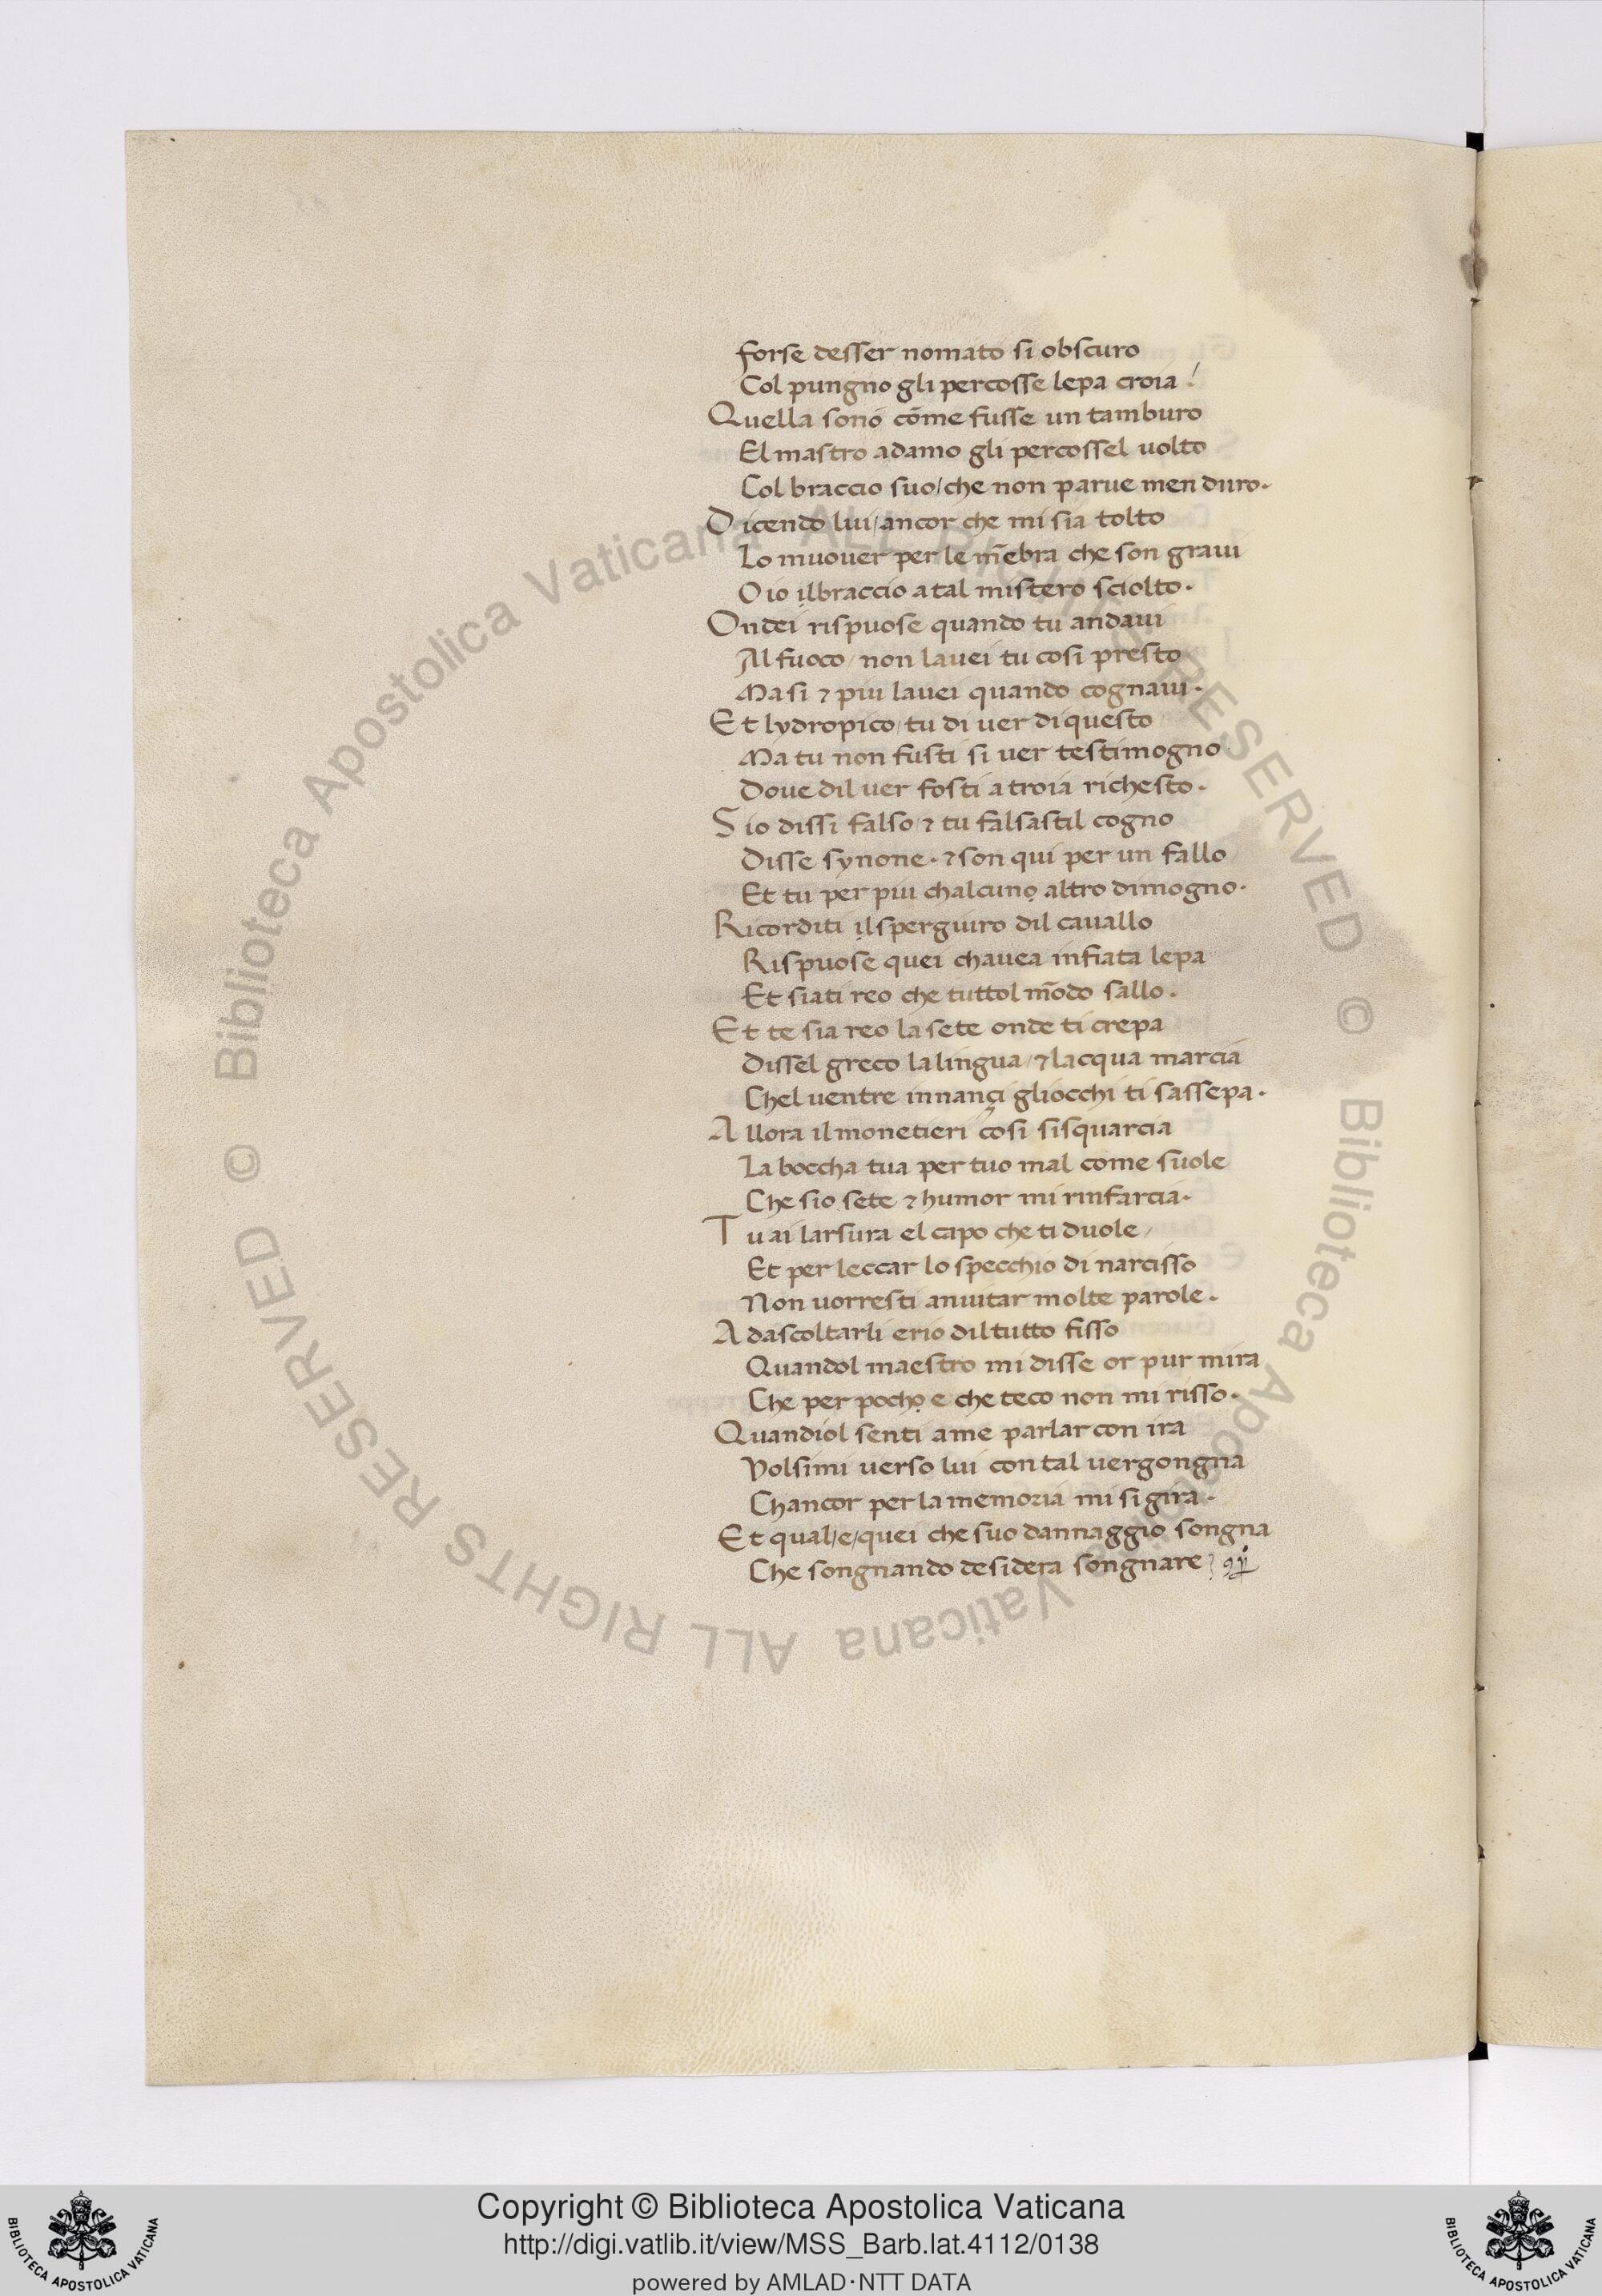 forse desser nomato si obscuro
Col pungno gli percosse lepa croia
Quella sono cōme fusse un tamburo
El mastro adamo gli percossel uolto
Col braccio suo/che non parue men duro.
Dicendo lui/ancor che mi sia tolto
Lo muouer per le mēbra che son graui
O io ilbraccio a tal mistero sciolto.
Ondei rispuose quando tu andaui
Al fuoco/non lauei tu cosi presto
Ma si ⁊ piu lauei quando cognaui.
Et lydropico/tu di uer di questo
Ma tu non fusti si uer testimogno
Doue dil uer fosti a troia richesto.
S io dissi falso/⁊ tu falsastil cogno
Disse synone. ⁊ son qui per un fallo
Et tu per piu chalcuno altro dimogno.
Ricorditi ilsperguiro dil cauallo
Rispuose quei chauea infiata lepa
Et siati reo che tuttol mōdo sallo.
Et te sia reo la sete onde ti crepa
Dissel greco la lingua/⁊ lacqua marcia
Chel uentre innançi gliocchi ti sassepa.
Allora il monetieri cosi sisquarcia
La boccha tua per tuo mal come suole
Che sio sete ⁊ humor mi rinfarcia.
Tu ai larsura el capo che ti duole/
Et per leccar lo specchio di narcisso
Non uorresti anuitar molte parole.
Adascoltarli erio dil tutto fisso
Quandol maestro mi disse or pur mira
Che per pocho e che teco non mi risso.
Quandiol senti a me parlar con ira
Volsimi uerso lui con tal uergongna
Chancor per la memoria mi si gira.
Et qual/e/quei che suo dannaggio songna
Che songnando desidera songnare
© Biblioteca Apostolica Vaticana ALL RIGHTS RESERVED © Biblioteca Apostolica Vaticana ALL RIGHTS RESERVED
Copyright © Biblioteca Apostolica Vaticana
http://digi.vatlib.it/view/MSS_Barb.lat.4112/0138
powered by AMLAD·NTT DATA
BIBLIOTECA APOSTOLICA VATICANA
BIBLIOTECA APOSTOLICA VATICANA